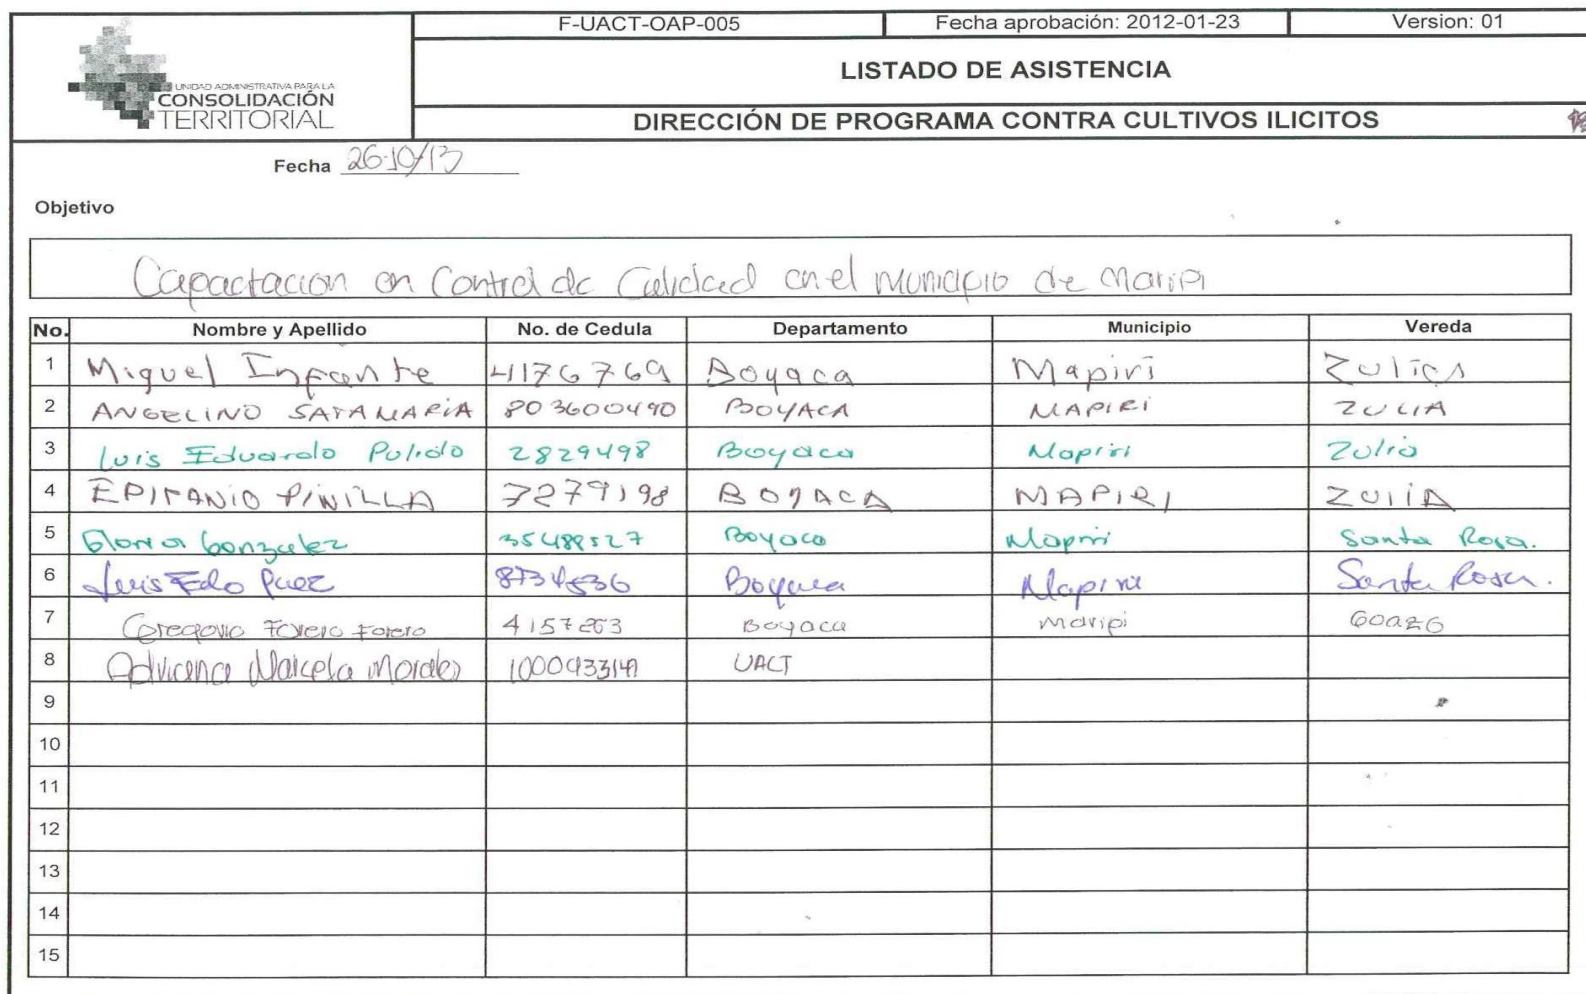 F-UACT-OAP-005 Fecha aprobación: 2012-01-23 Version: 01
UNIDAD ADMINISTRATIVA PARA LA
CONSOLIDACIÓN
TERRITORIAL
LISTADO DE ASISTENCIA
DIRECCIÓN DE PROGRAMA CONTRA CULTIVOS ILICITOS
Fecha 26-10/13
Objetivo
Capactacion en Control de Calidad en el municipio de Maripi
No. Nombre y Apellido No. de Cedula Departamento Municipio Vereda
1 Miguel Infante 4176769 Boyaca Mapiri Zulia
2 ANGELINO SATAMARIA 803600490 BOYACA MAPIRI ZULIA
3 Luis Eduardo Pulido 2829498 Boyaca Mapiri Zulia
4 EPIFANIO PINILLA 7279198 BOYACA MAPIRI ZULIA
5 Gloria Gonzalez 35488527 Boyaca Mapiri Santa Rosa.
6 Luis Edo Paez Boyaca Mapiri Santa Rosa.
7 Gregorio Forero Forero Boyaca Maripi
8 Marcela Morales UACT
9
10
11
12
13
14
15